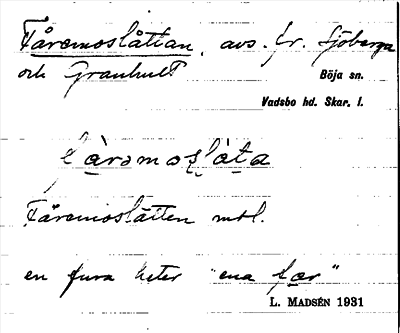 Fåremoslåttan, avs. fr. Sjöberga
och Granhult Böja sn.
Vadsbo hd. Skar. l.
fårəmoslåta
Fåremoslåtten mtl.
en fura heter "ena fær"
L. MADSÉN 1931